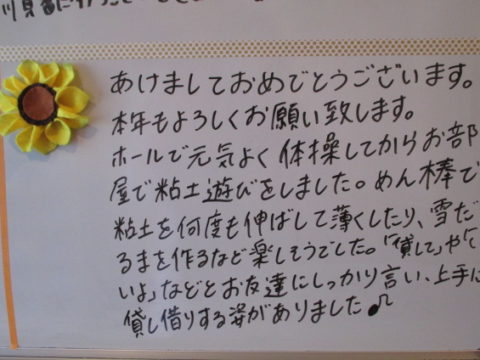 あけましておめでとうございます。
本年もよろしくお願い致します。
ホールで元気よく体操してからお部
屋で粘土遊びをしました。めん棒で
粘土を何度も伸ばして薄くしたり、雪だ
るまを作るなど楽しそうでした。「貸して」や「
いよ」などとお友達にしっかり言い、上手に
貸し借りする姿がありました♪